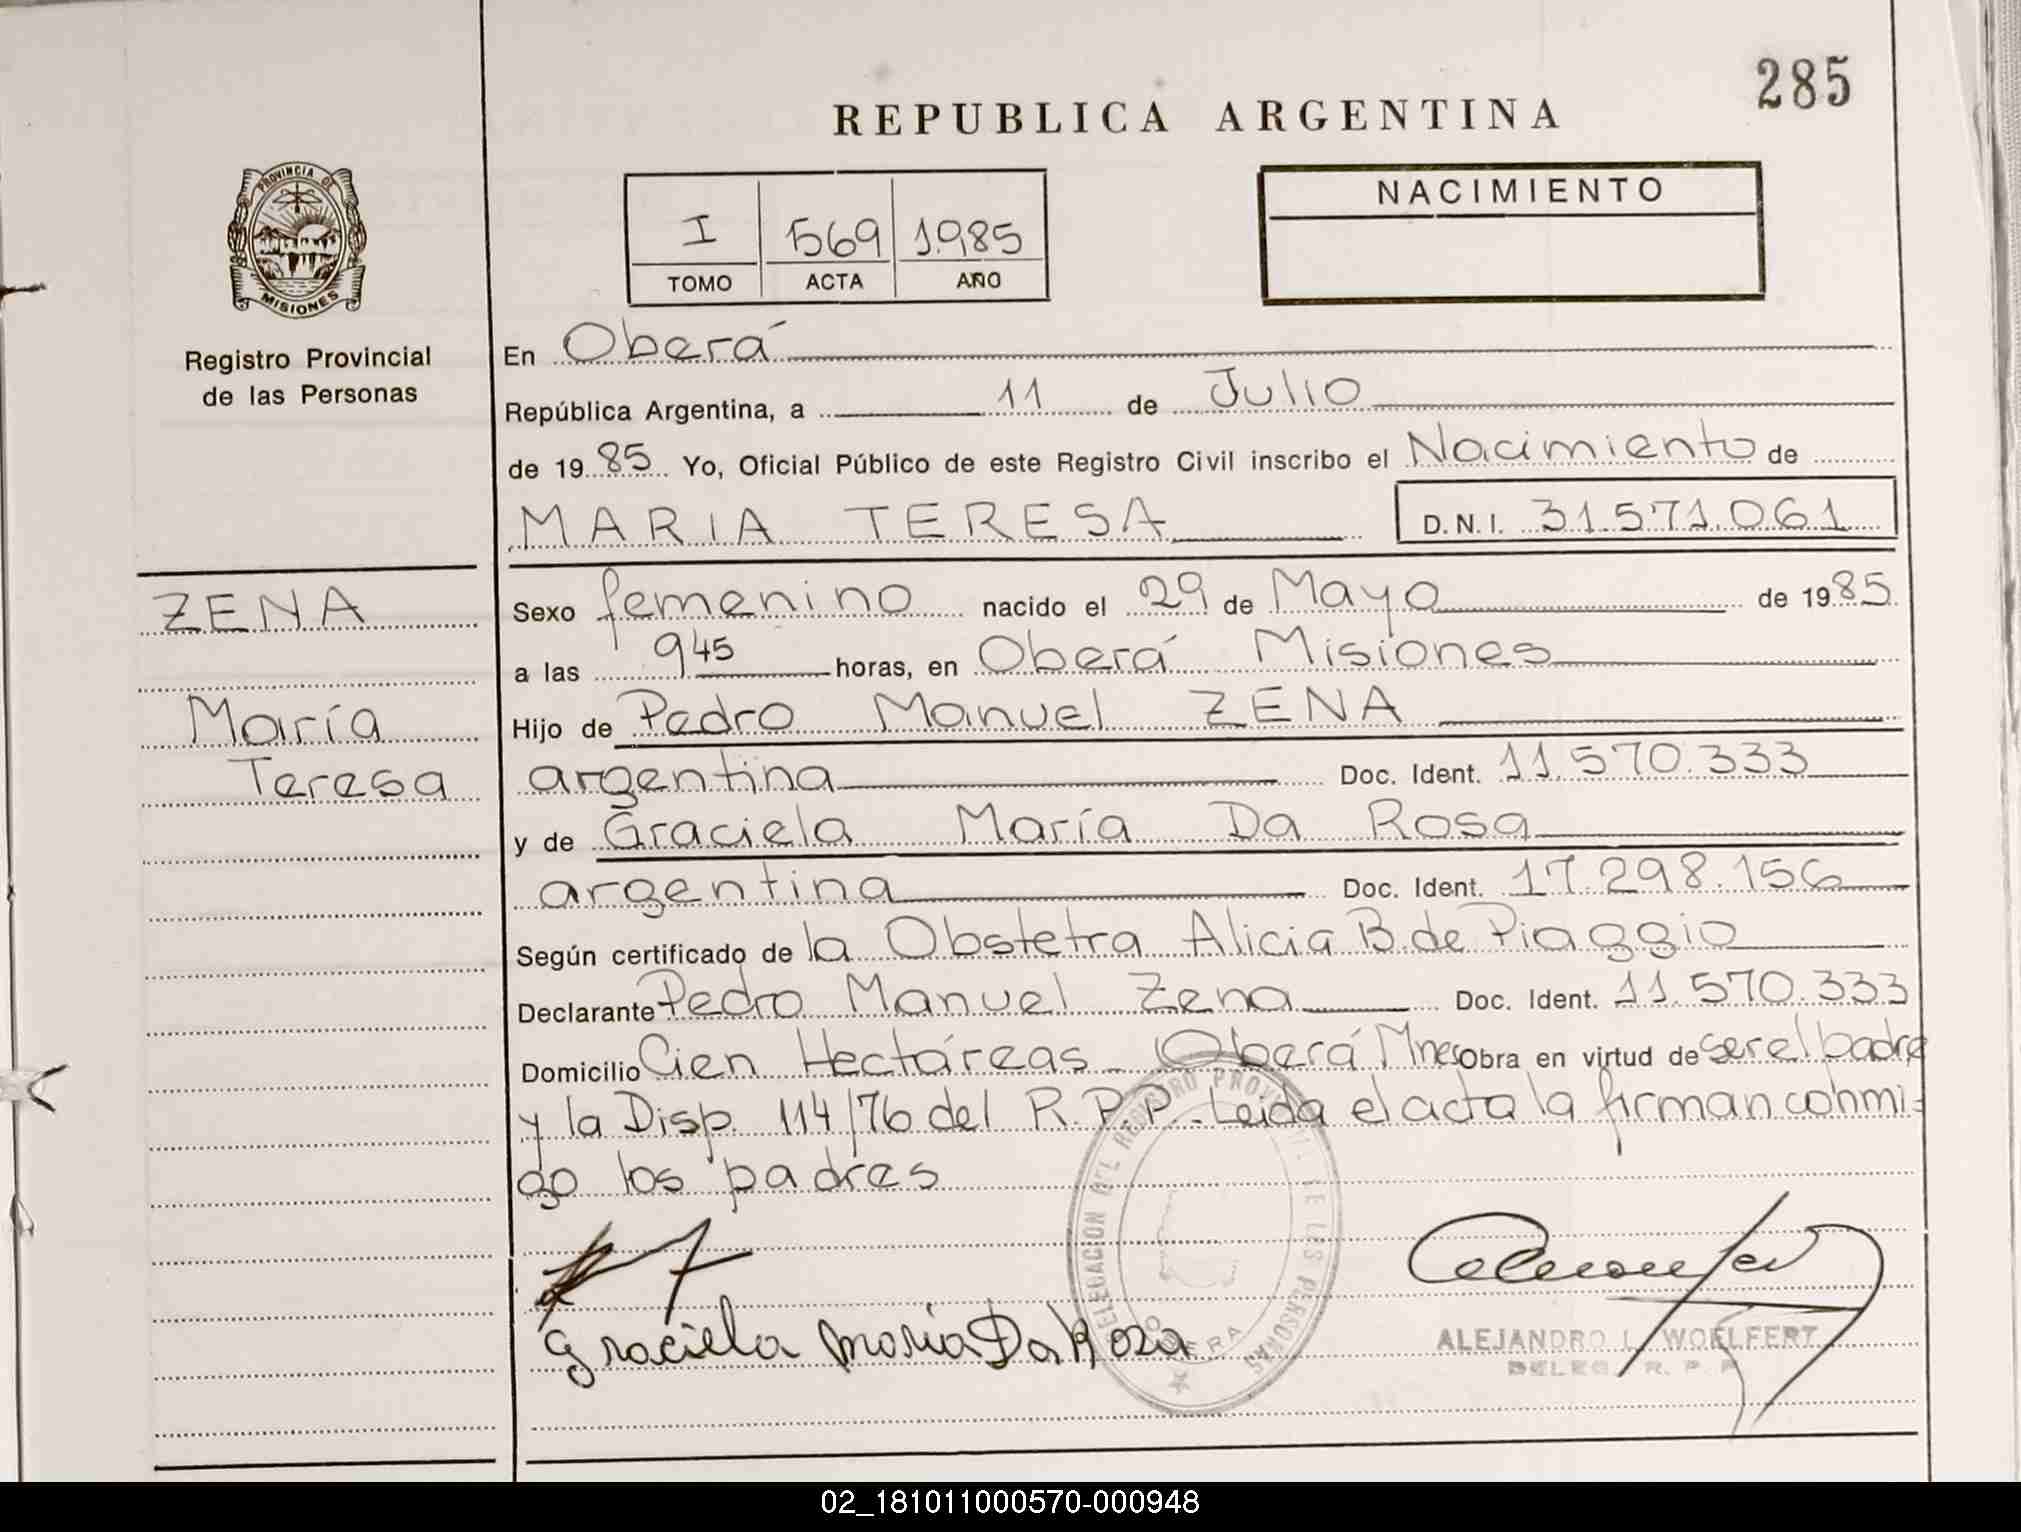 285
REPUBLICA ARGENTINA
PROVINCIA DE
MISIONES
Registro Provincial
de las Personas
I 569 1.985
TOMO ACTA AÑO
NACIMIENTO
En Oberá
República Argentina, a 11 de Julio
de 19 85 Yo, Oficial Público de este Registro Civil inscribo el Nacimiento de
MARIA TERESA D.N.I. 31.571.061
ZENA
María
Teresa
Sexo femenino nacido el 29 de Mayo de 19 85
a las 9 45 horas, en Oberá Misiones
Hijo de Pedro Manuel ZENA
argentina Doc. Ident. 11.570.333
y de Graciela María Da Rosa
argentina Doc. Ident. 17.298.156
Según certificado de la Obstetra Alicia B. de Piaggio
Declarante Pedro Manuel Zena Doc. Ident. 11.570.333
Domicilio Cien Hectáreas Oberá Mnes Obra en virtud de ser el padre
y la Disp. 114/76 del R.P.P. Leida el acta la firman conmi-
go los padres
Graciela Maria Da Roza
DELEGACION DEL REGISTRO PROVINCIAL DE LAS PERSONAS
OBERA
ALEJANDRO L. WOELFERT
DELEG. R. P. P.
02_181011000570-000948